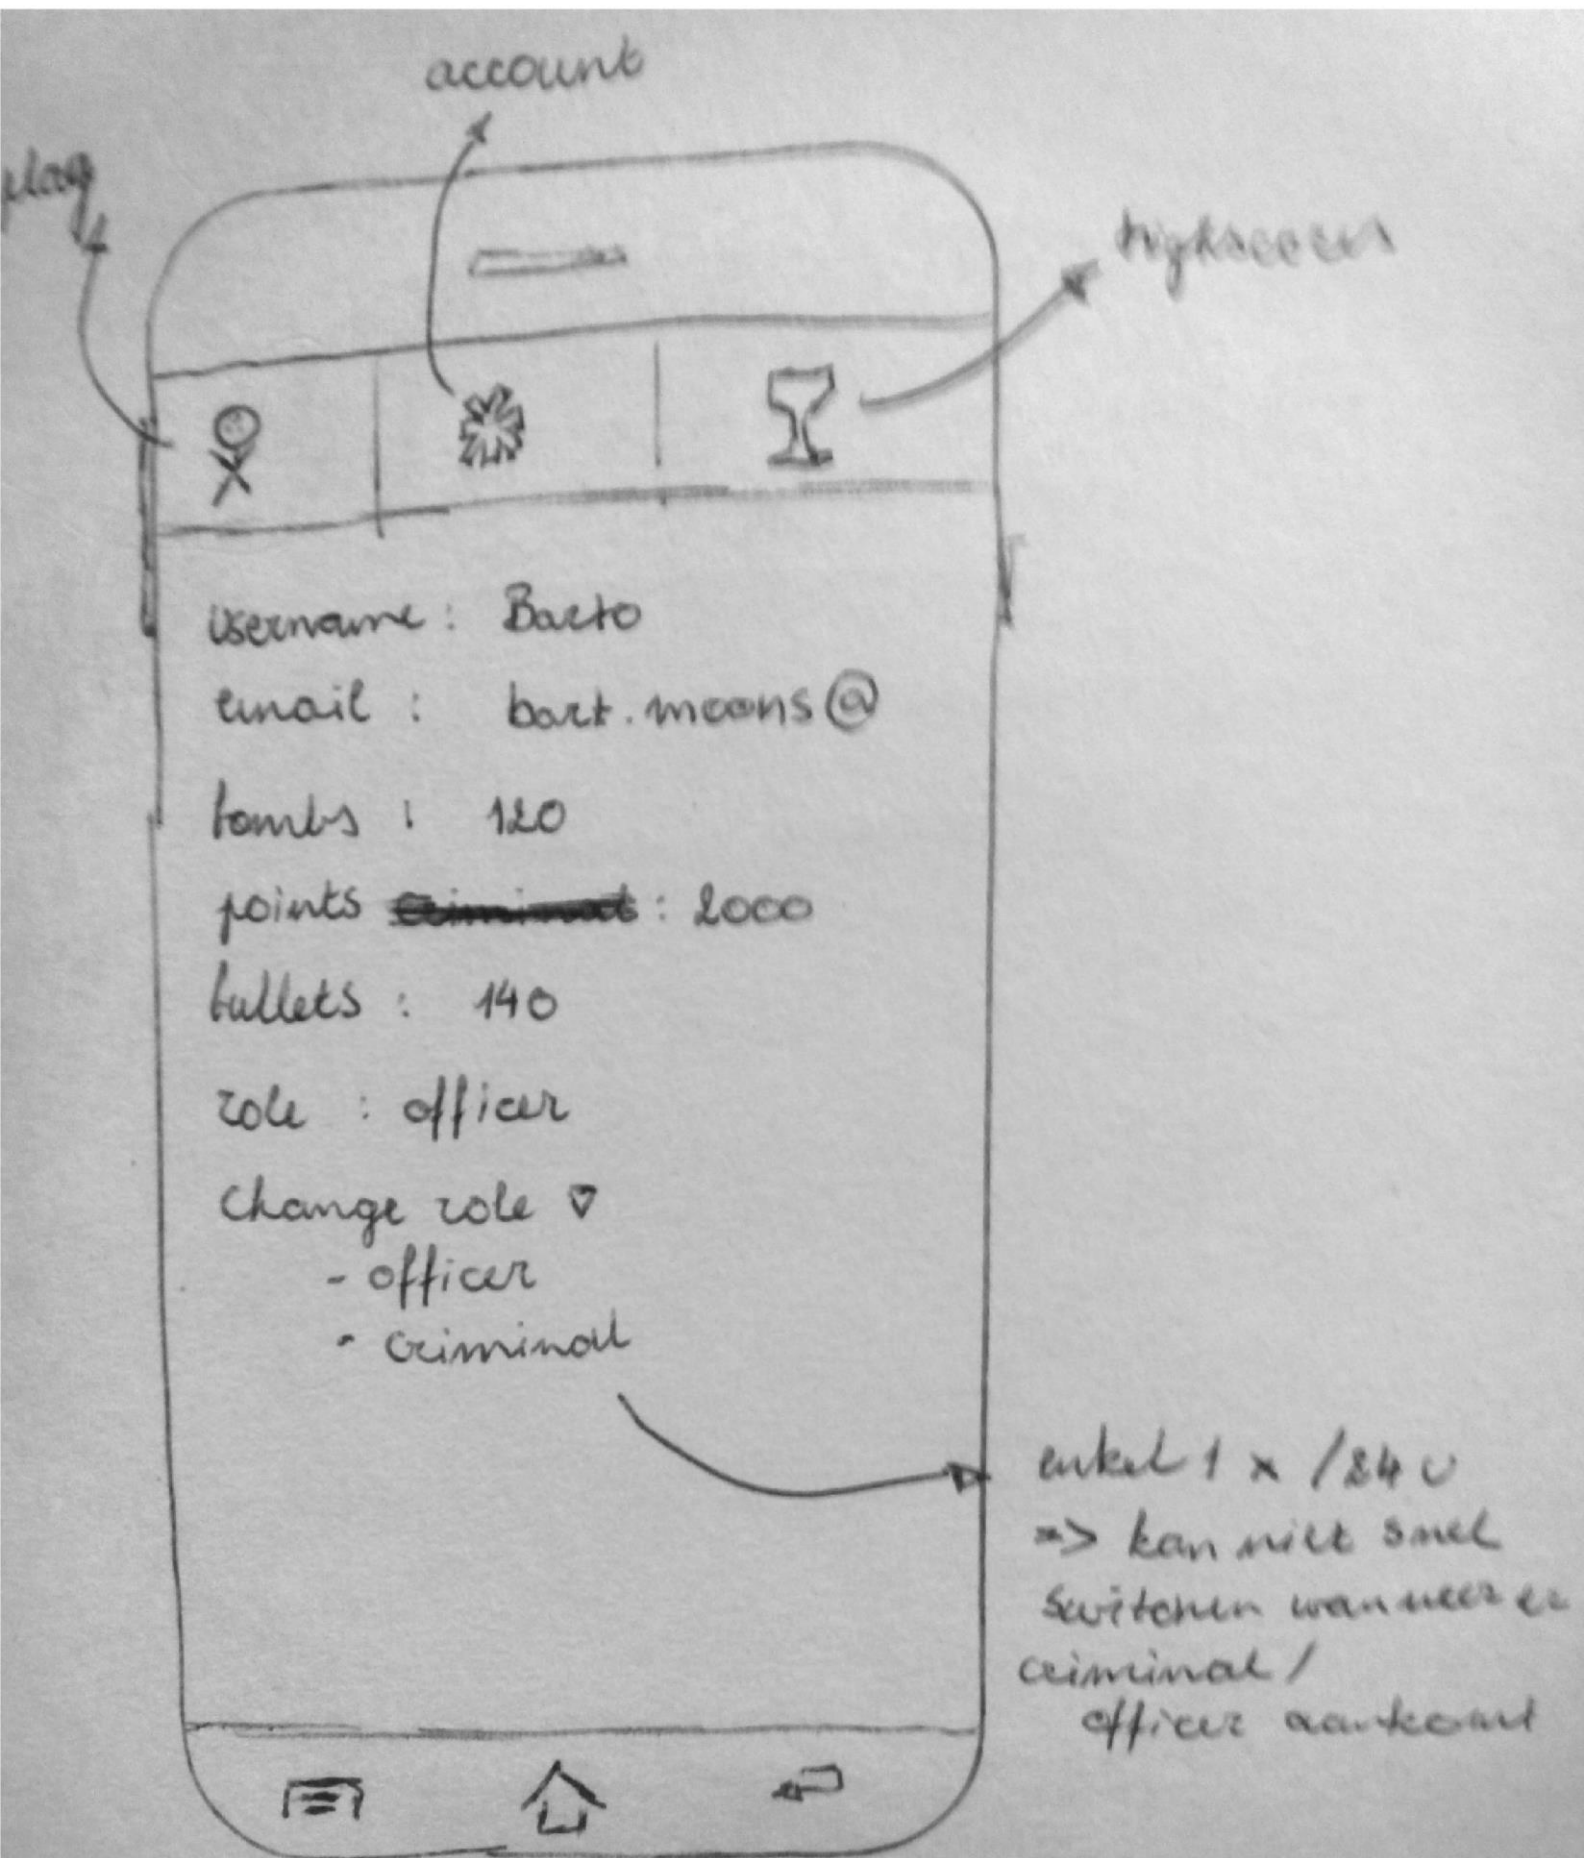 account
play
highscores
username : Barto
email : bart.moons@
bombs : 120
points criminal : 2000
bullets : 140
role : officer
Change role ▽
- officer
- criminal
enkel 1 x /24 u
=> kan niet snel
switchen wanneer er
criminal /
officer aankomt